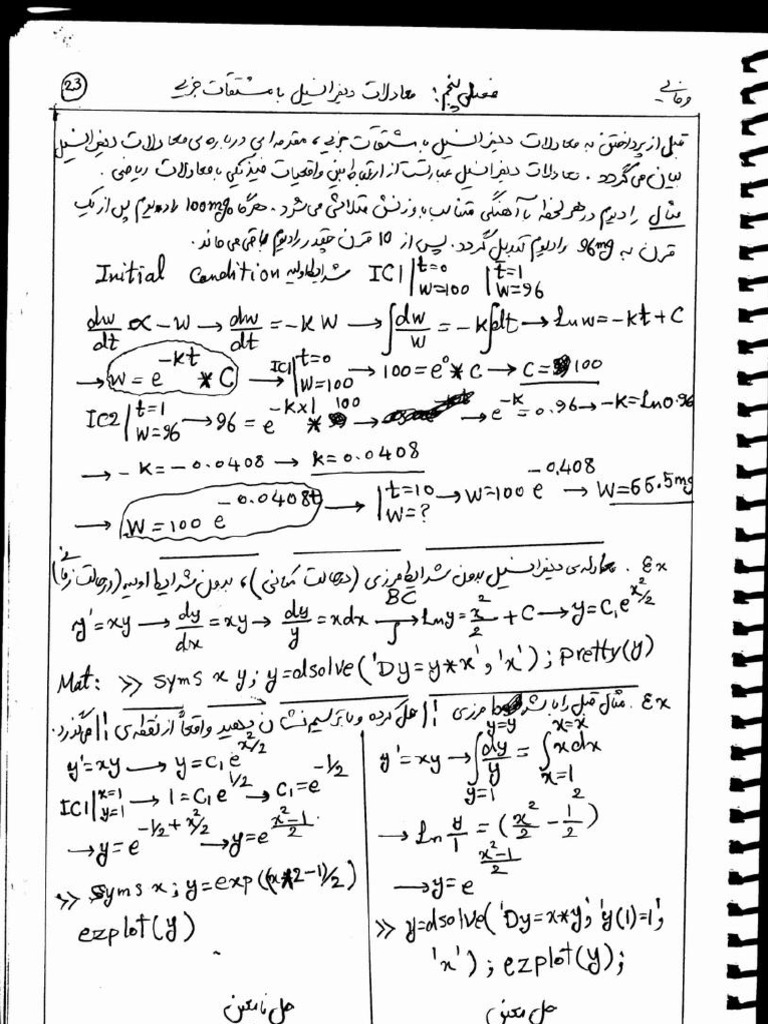 23
فصل پنجم: معادلات دیفرانسیل با مشتقات جزیی
وفایی
قبل از پرداختن به معادلات دیفرانسیل با مشتقات جزیی، مقدمه ای درباره ی معادلات دیفرانسیل
بیان می گردد. معادلات دیفرانسیل عبارتست از ارتباط بین واقعیات فیزیکی با معادلات ریاضی.
مثال رادیوم در هر لحظه با آهنگی متناسب با وزنش متلاشی می شود. هرگاه 100mg رادیوم پس از یک
قرن به 96mg رادیوم تبدیل گردد. پس از 10 قرن چقدر رادیوم باقی می ماند.
Initial Condition شرایط اولیه IC1 | t=0 W=100 | t=1 W=96
dw/dt ∝ -W → dw/dt = -KW → ∫dw/W = -K∫dt → Ln w = -kt + C
→ W = e^-kt * C → IC1 | t=0 W=100 → 100 = e^0 * C → C = 100
IC2 | t=1 W=96 → 96 = e^-k×1 * 100 → → e^-k = 0.96 → -K = Ln 0.96
→ -K = -0.0408 → K = 0.0408
→ W = 100 e^-0.0408t → | t=10 W=? → W = 100 e^-0.408 → W = 66.5 mg
Ex. معادله ی دیفرانسیل بدون شرایط مرزی (در حالت مکانی)، بدون شرایط اولیه (در حالت زمانی)
BC
y' = xy → dy/dx = xy → dy/y = xdx → ∫ Ln y = x²/2 + C → y = C₁e^x²/2
Mat: >> syms x y; y=dsolve('Dy=y*x','x'); pretty(y)
Ex. مثال قبل را با شرط مرزی |1 1 حل کرده و با ترسیم نشان دهید واقعاً از نقطه ی |1 1 می گذرد.
y' = xy → y = C₁e^x²/2
IC1 | x=1 y=1 → 1 = C₁e^1/2 → C₁ = e^-1/2
→ y = e^-1/2 + x²/2 → y = e^(x²-1)/2
>> syms x; y=exp((x**2-1)/2)
ezplot(y)
حل نامعین
y' = xy → ∫ y=1 y=y dy/y = ∫ x=1 x=x xdx
→ Ln y/1 = (x²/2 - 1²/2)
→ y = e^(x²-1)/2
>> y=dsolve('Dy=x*y','y(1)=1',
'x'); ezplot(y);
حل معین